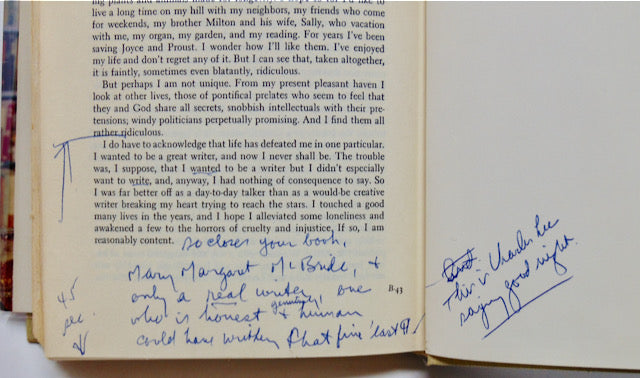 ing plants and animals made for longevity. I hope so for I'd like to
live a long time on my hill with my neighbors, my friends who come
for weekends, my brother Milton and his wife, Sally, who vacation
with me, my organ, my garden, and my reading. For years I've been
saving Joyce and Proust. I wonder how I'll like them. I've enjoyed
my life and don't regret any of it. But I can see that, taken altogether,
it is faintly, sometimes even blatantly, ridiculous.
But perhaps I am not unique. From my present pleasant haven I
look at other lives, those of pontifical prelates who seem to feel that
they and God share all secrets, snobbish intellectuals with their pre-
tensions; windy politicians perpetually promising. And I find them all
rather ridiculous.
I do have to acknowledge that life has defeated me in one particular.
I wanted to be a great writer, and now I never shall be. The trouble
was, I suppose, that I wanted to be a writer but I didn't especially
want to write, and, anyway, I had nothing of consequence to say. So
I was far better off as a day-to-day talker than as a would-be creative
writer breaking my heart trying to reach the stars. I touched a good
many lives in the years, and I hope I alleviated some loneliness and
awakened a few to the horrors of cruelty and injustice. If so, I am
reasonably content.
so closes your book,
Mary Margaret McBride, +
only a real writer, one
who is honest + genuinely human
could have written that fine last ¶
B-43
45
sec.
This is Charles Lee
saying good night.